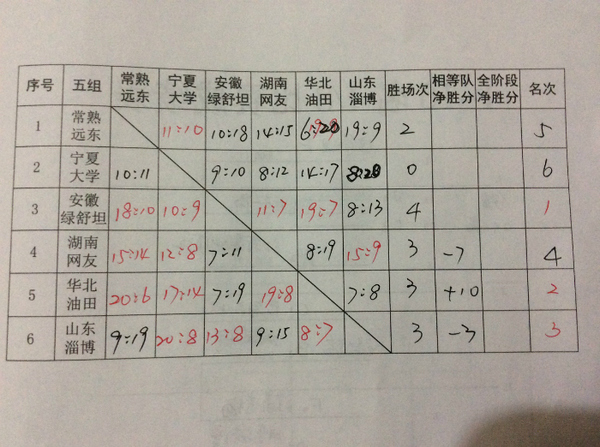 序号 五组 常熟远东 宁夏大学 安徽绿舒坦 湖南网友 华北油田 山东淄博 胜场次 相等队净胜分 全阶段净胜分 名次
1 常熟远东 11:10 10:18 14:15 6:20 19:9 2 5
2 宁夏大学 10:11 9:10 8:12 14:17 8:20 0 6
3 安徽绿舒坦 18:10 10:9 11:7 19:7 8:13 4 1
4 湖南网友 15:14 12:8 7:11 8:19 15:9 3 -7 4
5 华北油田 20:6 17:14 7:19 19:8 7:8 3 +10 2
6 山东淄博 9:19 20:8 13:8 9:15 8:7 3 -3 3